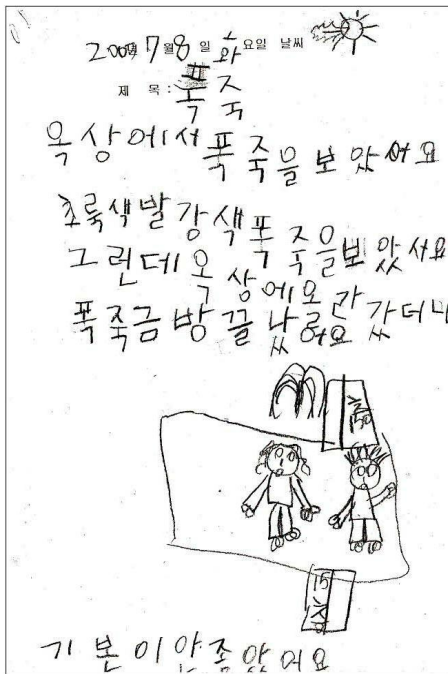 7월 8일 화요일 날씨
제 목: 폭죽
옥상에서 폭죽을 보았어요
초룩색발강색폭죽을보았서요
그런데 옥상에 올라갔더니
폭죽금방끝났어요
기본이 안좋았어요